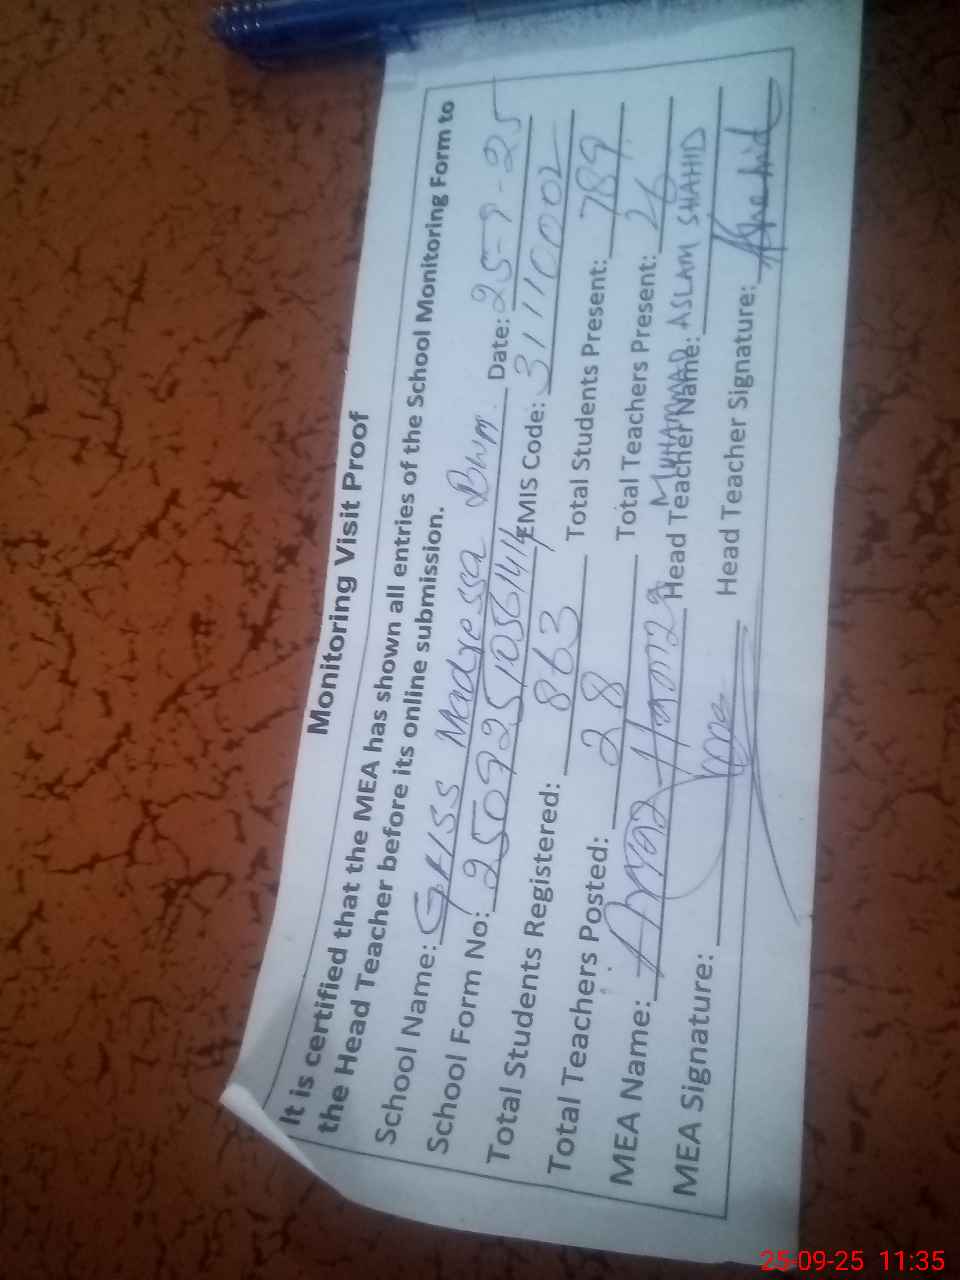 Monitoring Visit Proof
It is certified that the MEA has shown all entries of the School Monitoring Form to
the Head Teacher before its online submission.
School Name: GHSS Madressa Bwn. Date: 25-9-25
School Form No: 25092510561414 EMIS Code: 31110002
Total Students Registered: 863 Total Students Present: 789
Total Teachers Posted: 28 Total Teachers Present: 26
MEA Name: Hamza Head Teacher Name: MUHAMMAD ASLAM SHAHID
MEA Signature: Head Teacher Signature: Shahid
25-09-25 11:35